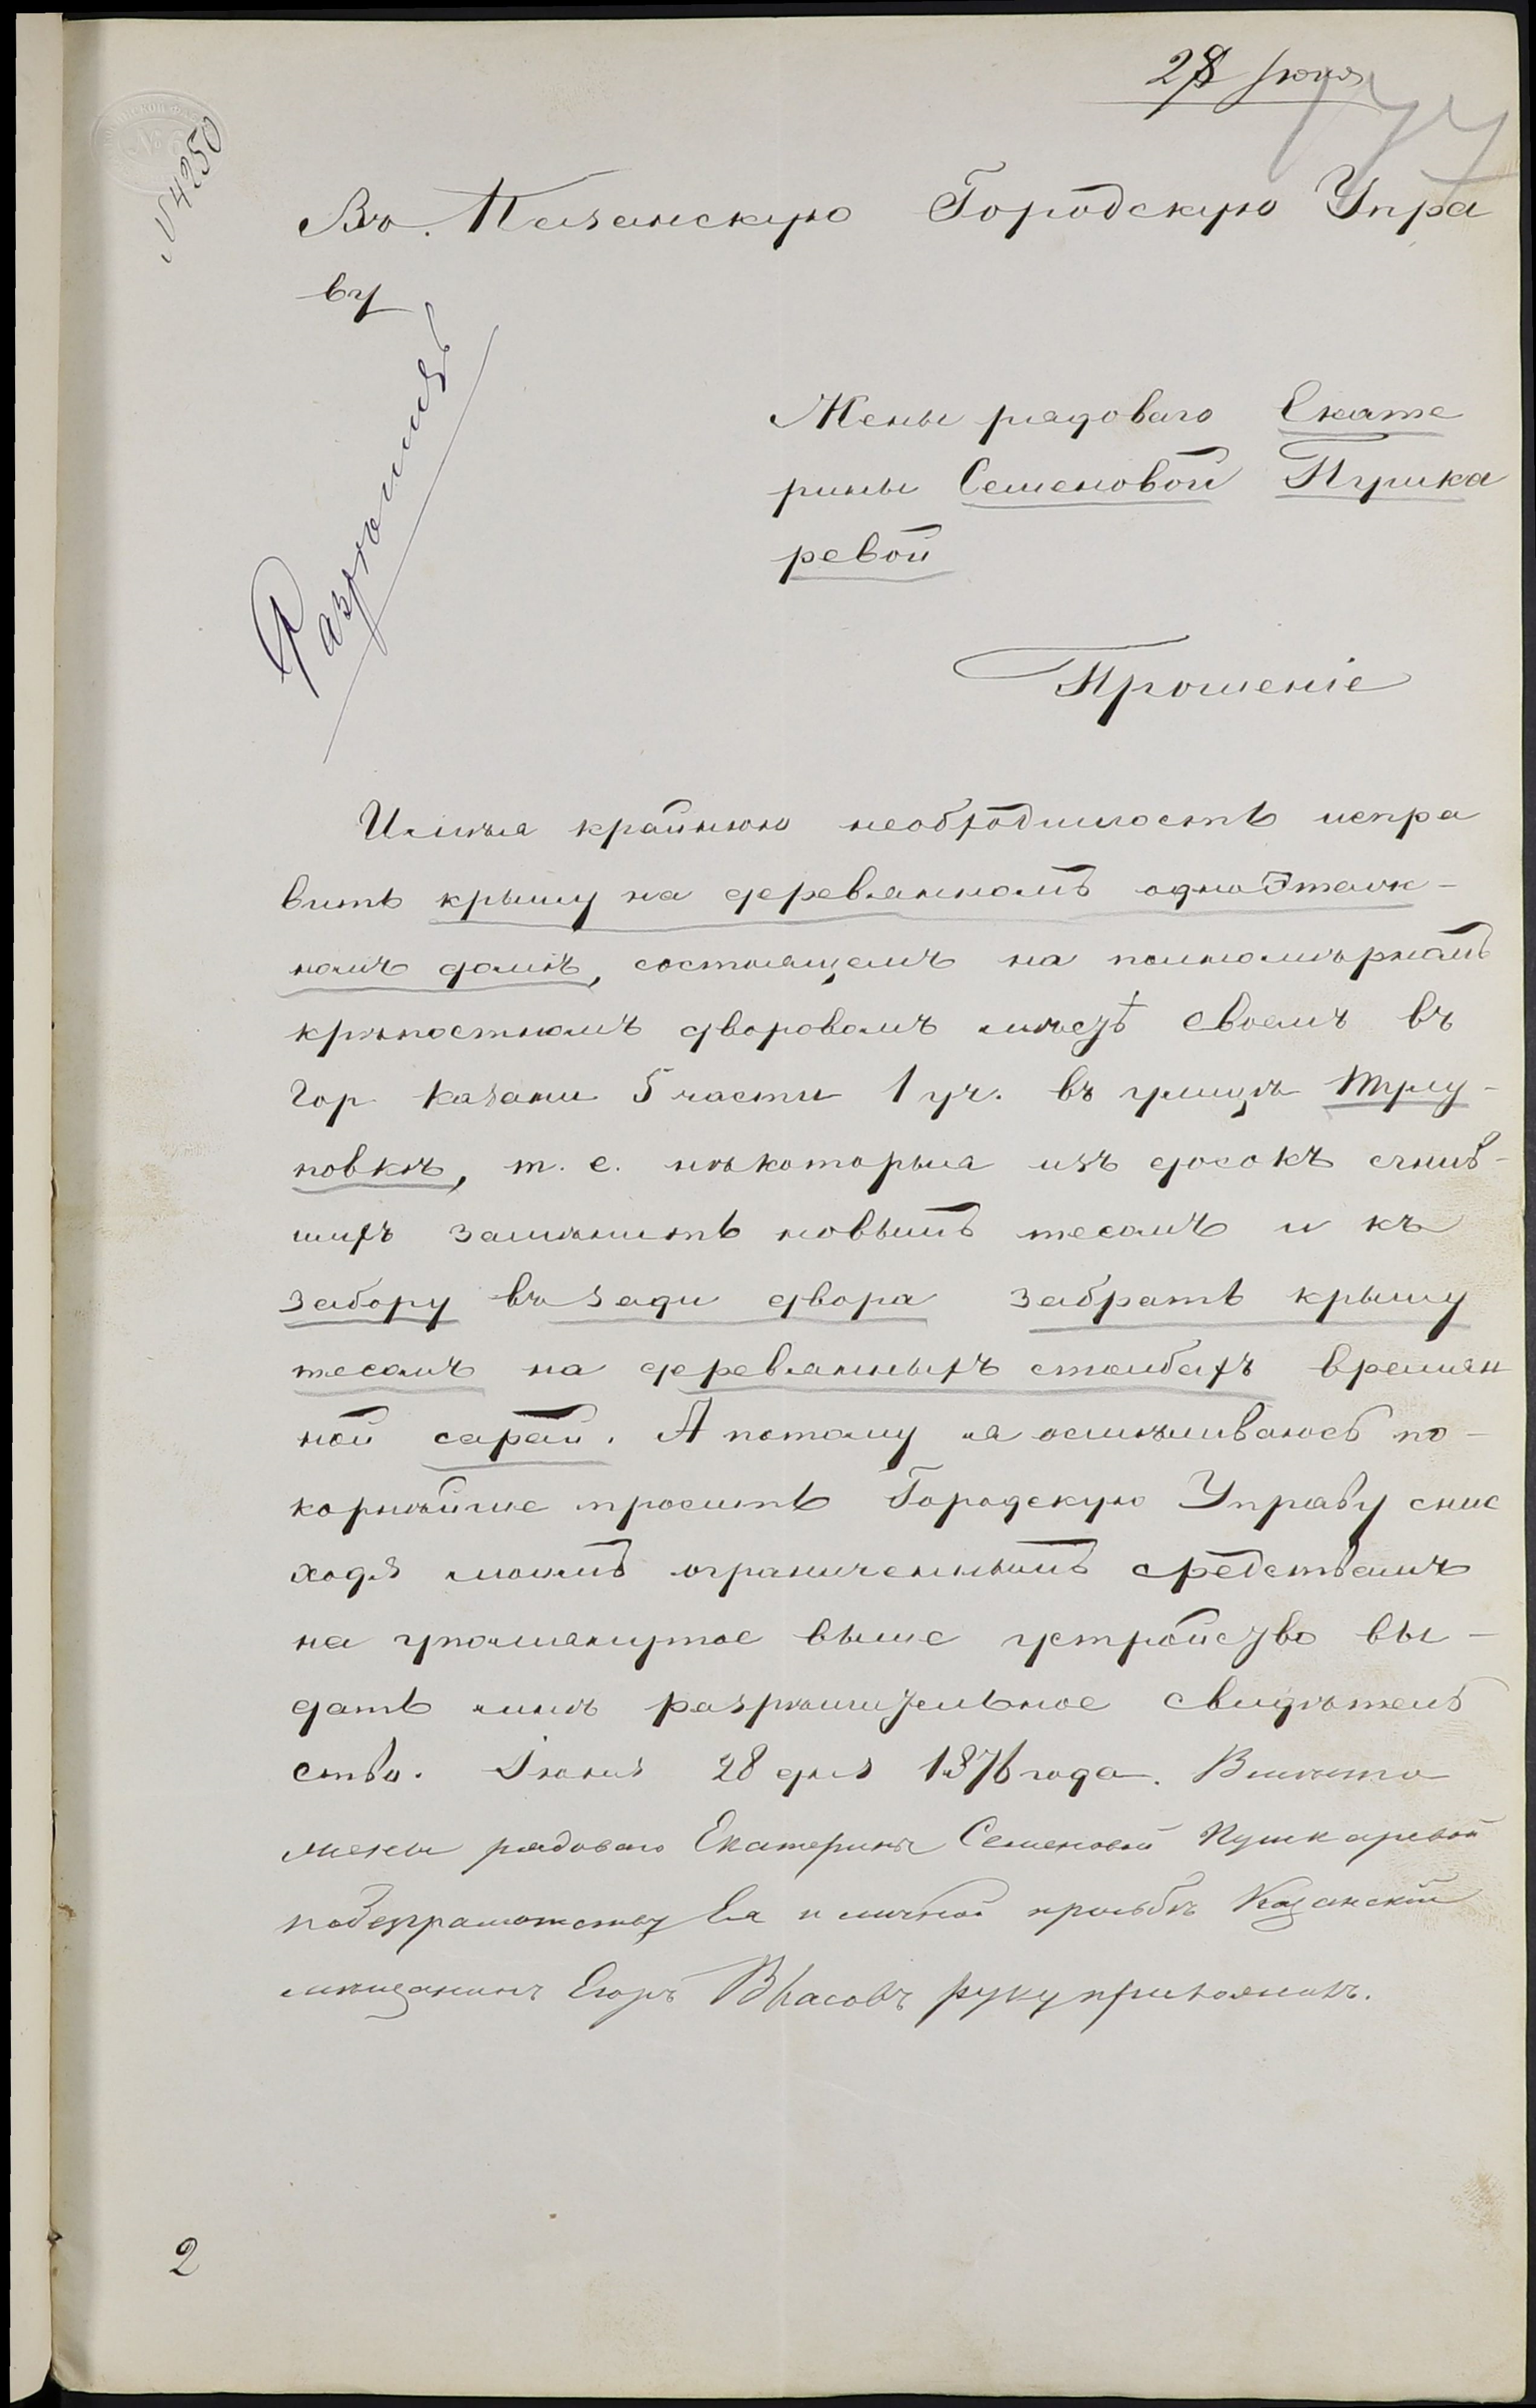 28 Июня
№ 4250
Въ Казанскую Городскую Упра
ву
Разрешить
Жены рядоваго Екате
рины Семеновой Пушка
ревой
Прошеніе
Имѣя крайнюю необходимость испра
вить крышу на деревянномъ одноэтаж-
номъ домѣ, состоящемъ на полномѣрномъ
крѣпостномъ дворовомъ мѣстѣ своемъ въ
Гор. Казани 5 части 1 уч. въ улицѣ
новкѣ, т. е. нѣкоторыя изъ досокъ сгнив-
шихъ замѣнить новымъ тесомъ и къ
забору въ зади двора забрать крышу
тесомъ на деревянныхъ столбахъ времян
ной сарай. А потому я осмѣливаюсь по-
корнѣйше просить Городскую Управу снис
ходя моимъ ограниченнымъ средствамъ
на упомянутое выше устройство вы-
дать мнѣ разрѣшительное свидѣтель
ство. Іюня 28 дня 1876 года. Вмѣсто
жены рядоваго Екатерины Семеновой Пушкаревой
по безграмотству Ея и личной прозьбѣ Казанскій
мѣщанинъ Егоръ Власовъ руку приложилъ.
2